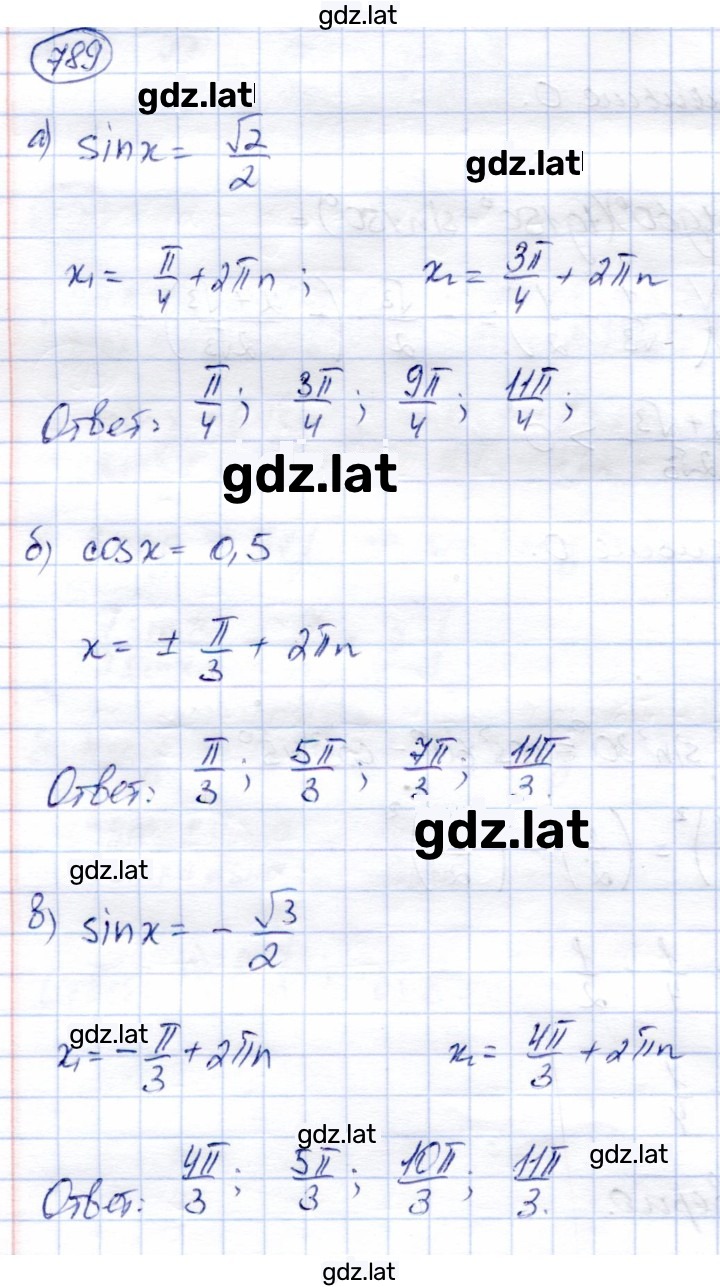 gdz.lat
789
gdz.lat
а) sin x = √2/2
gdz.lat
x₁ = π/4 + 2πn ; x₂ = 3π/4 + 2πn
Ответ: π/4 ; 3π/4 ; 9π/4 ; 11π/4 ;
gdz.lat
б) cos x = 0,5
x = ± π/3 + 2πn
Ответ: π/3 ; 5π/3 ; 7π/3 ; 11π/3.
gdz.lat
gdz.lat
в) sin x = - √3/2
gdz.lat
x₁ = - π/3 + 2πn x₂ = 4π/3 + 2πn
gdz.lat
gdz.lat
Ответ: 4π/3 ; 5π/3 ; 10π/3 ; 11π/3.
gdz.lat